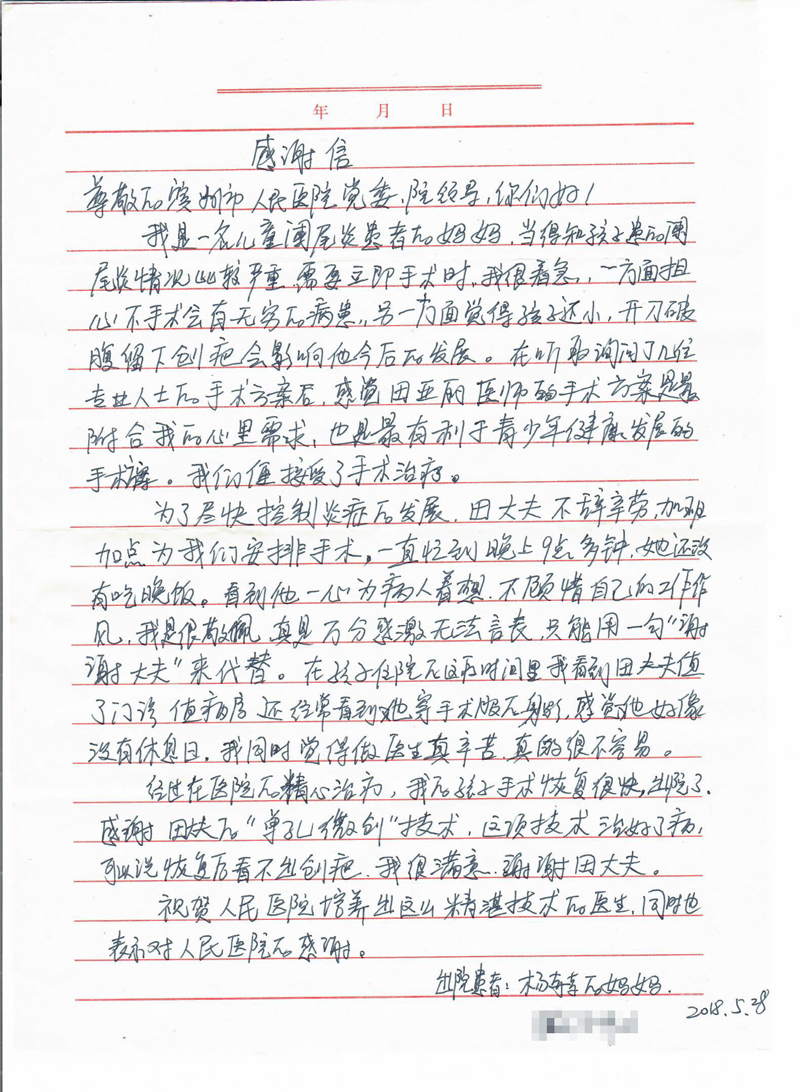 年 月 日
感谢信
尊敬的滨州市人民医院党委、院领导,你们好!
我是一名儿童阑尾炎患者的妈妈,当得知孩子患的阑
尾炎情况比较严重,需要立即手术时,我很着急,一方面担
心不手术会有无穷的病患,另一方面觉得孩子还小,开刀破
腹留下创疤会影响他今后的发展。在听取询问了几位
专业人士的手术方案后,感觉田亚丽医师的手术方案是最
附合我的心里需求,也是最有利于青少年健康发展的
手术。我们便接受了手术治疗。
为了尽快控制炎症的发展,田大夫不辞辛劳,加班
加点为我们安排手术,一直忙到晚上9点多钟,她还没
有吃晚饭。看到他一心为病人着想,不顾惜自己的工作作
风,我是很敬佩,真是万分感激无法言表,只能用一句“谢
谢大夫”来代替。在孩子住院的这段时间里我看到田大夫值
了门诊值病房还经常看到她穿手术服的身影,感觉她好像
没有休息日,我同时觉得做医生真辛苦,真的很不容易。
经过在医院的精心治疗,我的孩子手术恢复很快,出院了,
感谢田大夫的“单孔微创”技术,这项技术治好了病,
可以说恢复后看不出创疤,我很满意,谢谢田大夫。
祝贺人民医院培养出这么精湛技术的医生,同时也
表示对人民医院的感谢。
出院患者:杨的妈妈.
2018.5.28